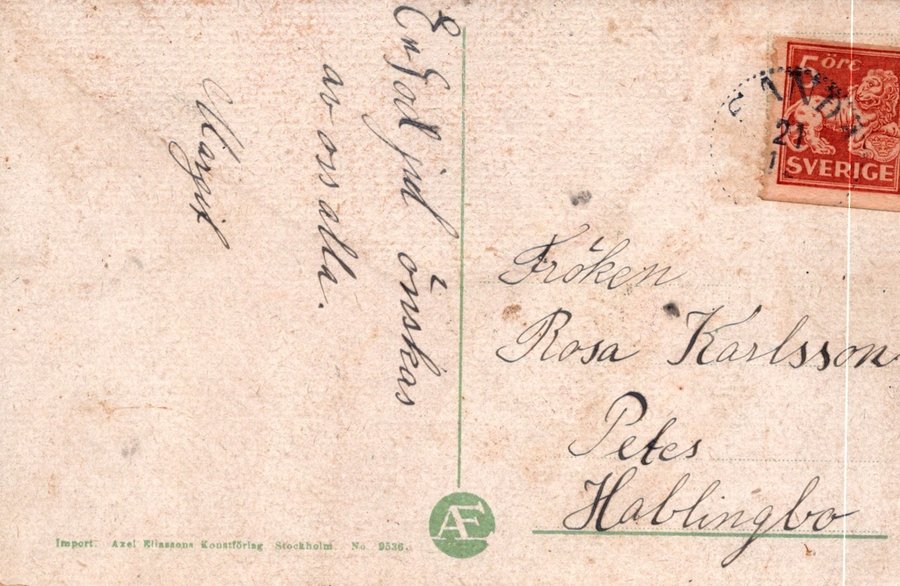 En God jul önskas
av oss alla.
Margit
5 ÖRE
SVERIGE
21
Fröken
Rosa Karlsson
Petes
Hablingbo
AE
Import. Axel Eliassons Konstförlag Stockholm. No 9536.